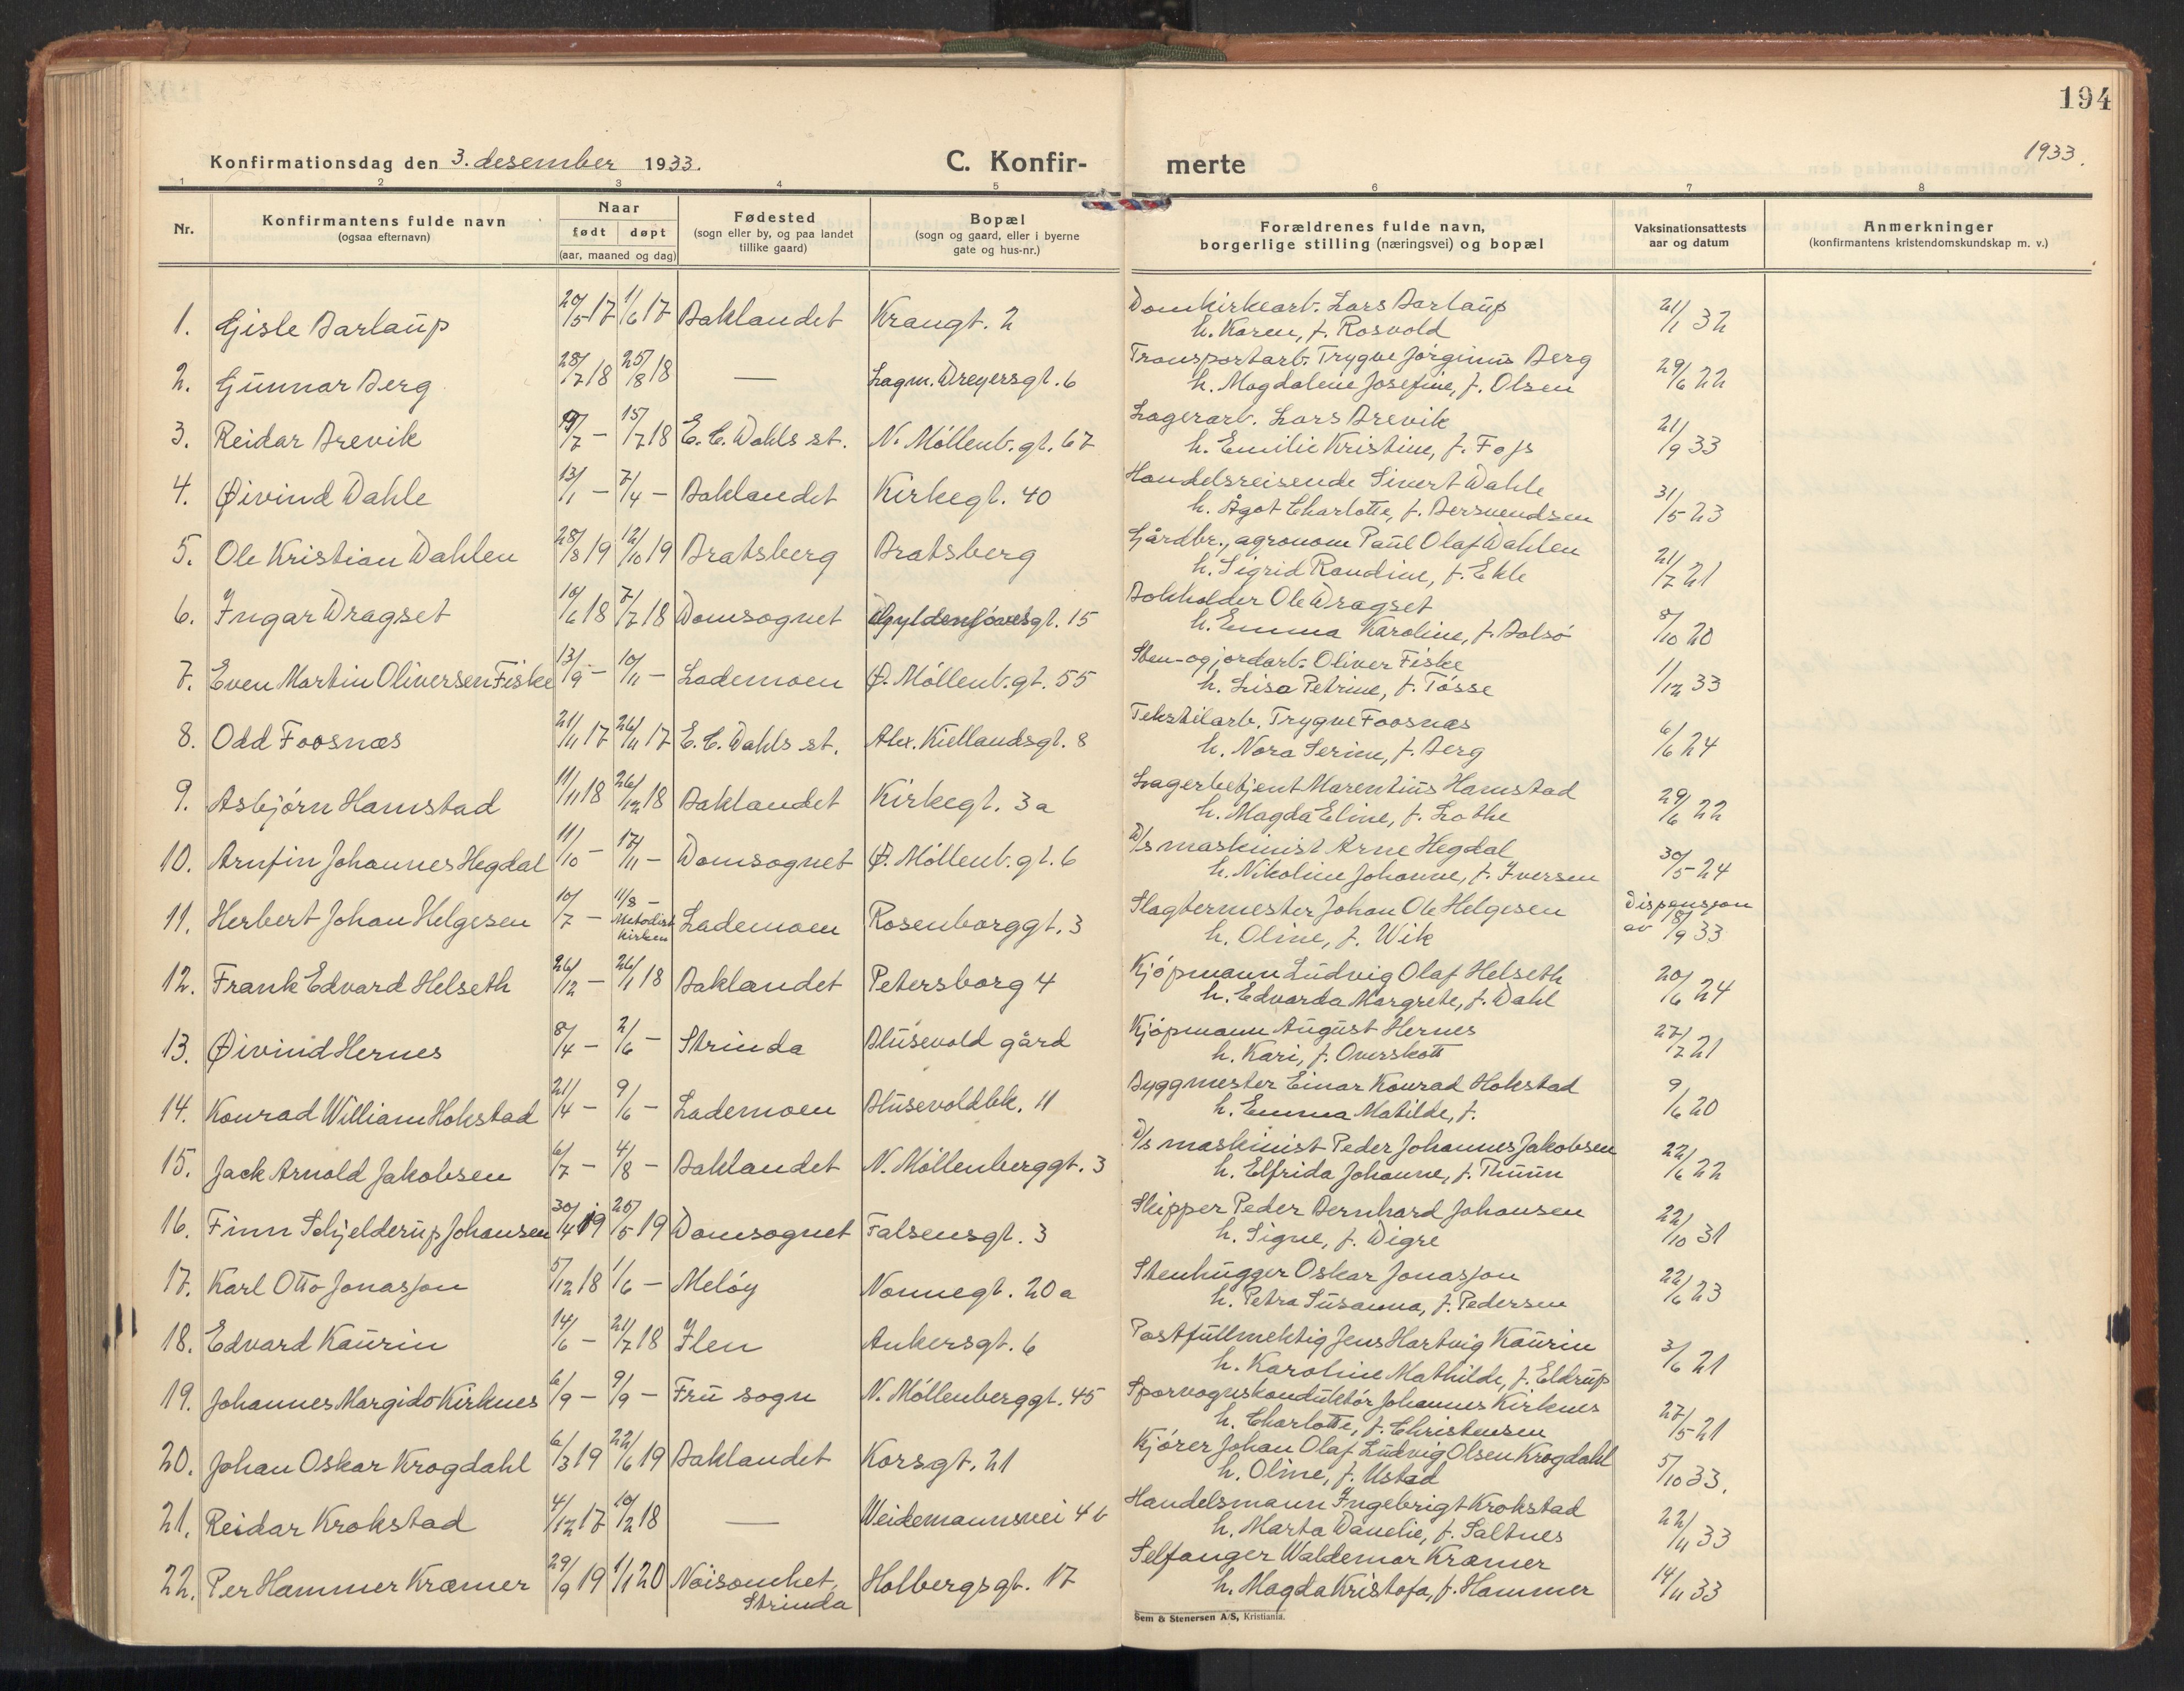 194
Konfirmationsdag den 3. desember 1933.
C. Konfirmerte
1933.
1 2 3 4 5 6 7 8
Nr.
Konfirmantens fulde navn
(ogsaa efternavn)
Naar
født døpt
(aar, maaned og dag)
Fødested
(sogn eller by, og paa landet
tillike gaard)
Bopæl
(sogn og gaard, eller i byerne
gate og hus-nr.)
Forældrenes fulde navn,
borgerlige stilling (næringsvei) og bopæl
Vaksinationsattests
aar og datum
Anmerkninger
(konfirmantens kristendomskundskap m. v.)
1. Gisle Barlaup 20/5 17 1/6 17 Baklandet Krangt. 2 Domkirkearb. Lars Barlaup 21/1 32
h. Karen, f. Rosvold
2. Gunnar Berg 28/7 18 25/8 18 — Lagm. Dreyersgt. 6 Transportarb. Trygve Jørginus Berg 29/6 22
h. Magdalene Josefine, f. Olsen
3. Reidar Brevik /7 – 15/7 18 E. C. Dahls st. N. Möllenb. gt. 67 Lagerarb. Lars Brevik 21/9 33
h. Emilie Kristine, f. Fojs
4. Øivind Dahle 13/1 – 7/4 – Baklandet Kirkegt. 40 Handelsreisende Sivert Dahle 31/5 23
h. Ågot Charlotte, f. Bersvendsen
5. Ole Kristian Dahlen 28/8 19 12/10 19 Bratsberg Bratsberg Gårdbr., agronom Paul Olaf Dahlen 21/7 21
h. Sigrid Randine, f. Ekle
6. Ingar Dragset 10/6 18 7/7 18 Domsognet Gyldenløvesgt. 15 Bokholder Ole Dragset 8/10 20
h. Emma Karoline, f. Bolsö
7. Even Martin Oliversen Fiske 13/9 – 10/11 – Lademoen Ø. Möllenb. gt. 55 Sten- og jordarb. Oliver Fiske 1/12 33
h. Lisa Petrine, f. Tösse
8. Odd Foosnæs 21/11 17 26/11 17 E. C. Dahls st. Alex. Kiellandsgt. 8 Tekstilarb. Trygve Foosnæs 6/6 24
h. Nora Serine, f. Berg
9. Asbjörn Hamstad 11/11 18 26/12 18 Baklandet Kirkegt. 3a Lagerbetjent Marentius Hamstad 29/6 22
h. Magda Eline, f. Lothe
10. Arnfin Johannes Hegdal 11/10 – 17/11 – Domsognet Ø. Möllenb. gt. 6 D/s maskinist Arne Hegdal 30/5 24
h. Nikoline Johanne, f. Iversen
11. Herbert Johan Helgesen 10/7 – 11/8 – Metodistkirken Lademoen Rosenborggt. 3 Slagtermester Johan Ole Helgesen Dispensjon av 18/9 33
h. Oline, f. Wik
12. Frank Edvard Helseth 26/12 – 26/1 18 Baklandet Petersborg 4 Kjöpmann Ludvig Olaf Helseth 20/6 24
h. Edvarda Margrete, f. Dahl
13. Øivind Hernes 8/4 – 2/6 – Strinda Blusevold gård Kjöpmann August Hernes 27/7 21
h. Kari, f. Overskott
14. Konrad William Hokstad 21/4 – 9/6 – Lademoen Blusevoldbk. 11 Byggmester Einar Konrad Hokstad 9/6 20
h. Emma Matilde, f.
15. Jack Arnold Jakobsen 6/7 – 4/8 – Baklandet N. Möllenberggt. 3 D/s maskinist Peder Johannes Jakobsen 22/6 22
h. Elfrida Johanne, f. Thuun
16. Finn Schjelderup Johansen 30/4 19 25/5 19 Domsognet Falsensgt. 3 Skipper Peder Bernhard Johansen 22/10 31
h. Signe, f. Digre
17. Karl Otto Jonasson 5/12 18 1/6 – Melöy Nonnegt. 20a Stenhugger Oskar Jonasson 22/6 23
h. Petra Susanna, f. Pedersen
18. Edvard Kaurin 14/6 – 21/7 18 Ilen Ankersgt. 6 Postfullmektig Jens Hartvig Kaurin 3/6 21
h. Karoline Mathilde, f. Eldrup
19. Johannes Margido Kirknes 6/9 – 9/9 – Fru sogn N. Möllenberggt. 45 Sporvognskonduktör Johannes Kirknes 27/5 21
h. Charlotte, f. Christensen
20. Johan Oskar Krogdahl 6/3 19 22/6 19 Baklandet Korsgt. 21 Kjörer Johan Olaf Ludvig Olsen Krogdahl 5/10 33.
h. Oline, f. Ustad
21. Reidar Krokstad 4/12 17 10/2 18 — Weidemannsvei 4b Handelsmann Ingebrigt Krokstad 22/11 33
h. Marta Danelie, f. Saltnes
22. Per Hammer Kræmer 29/9 19 1/1 20 Noisomhet, Strinda Holbergsgt. 17 Selfanger Waldemar Kræmer 14/11 33
h. Magda Kristofa, f. Hammer
Sem & Stenersen A/S, Kristiania.